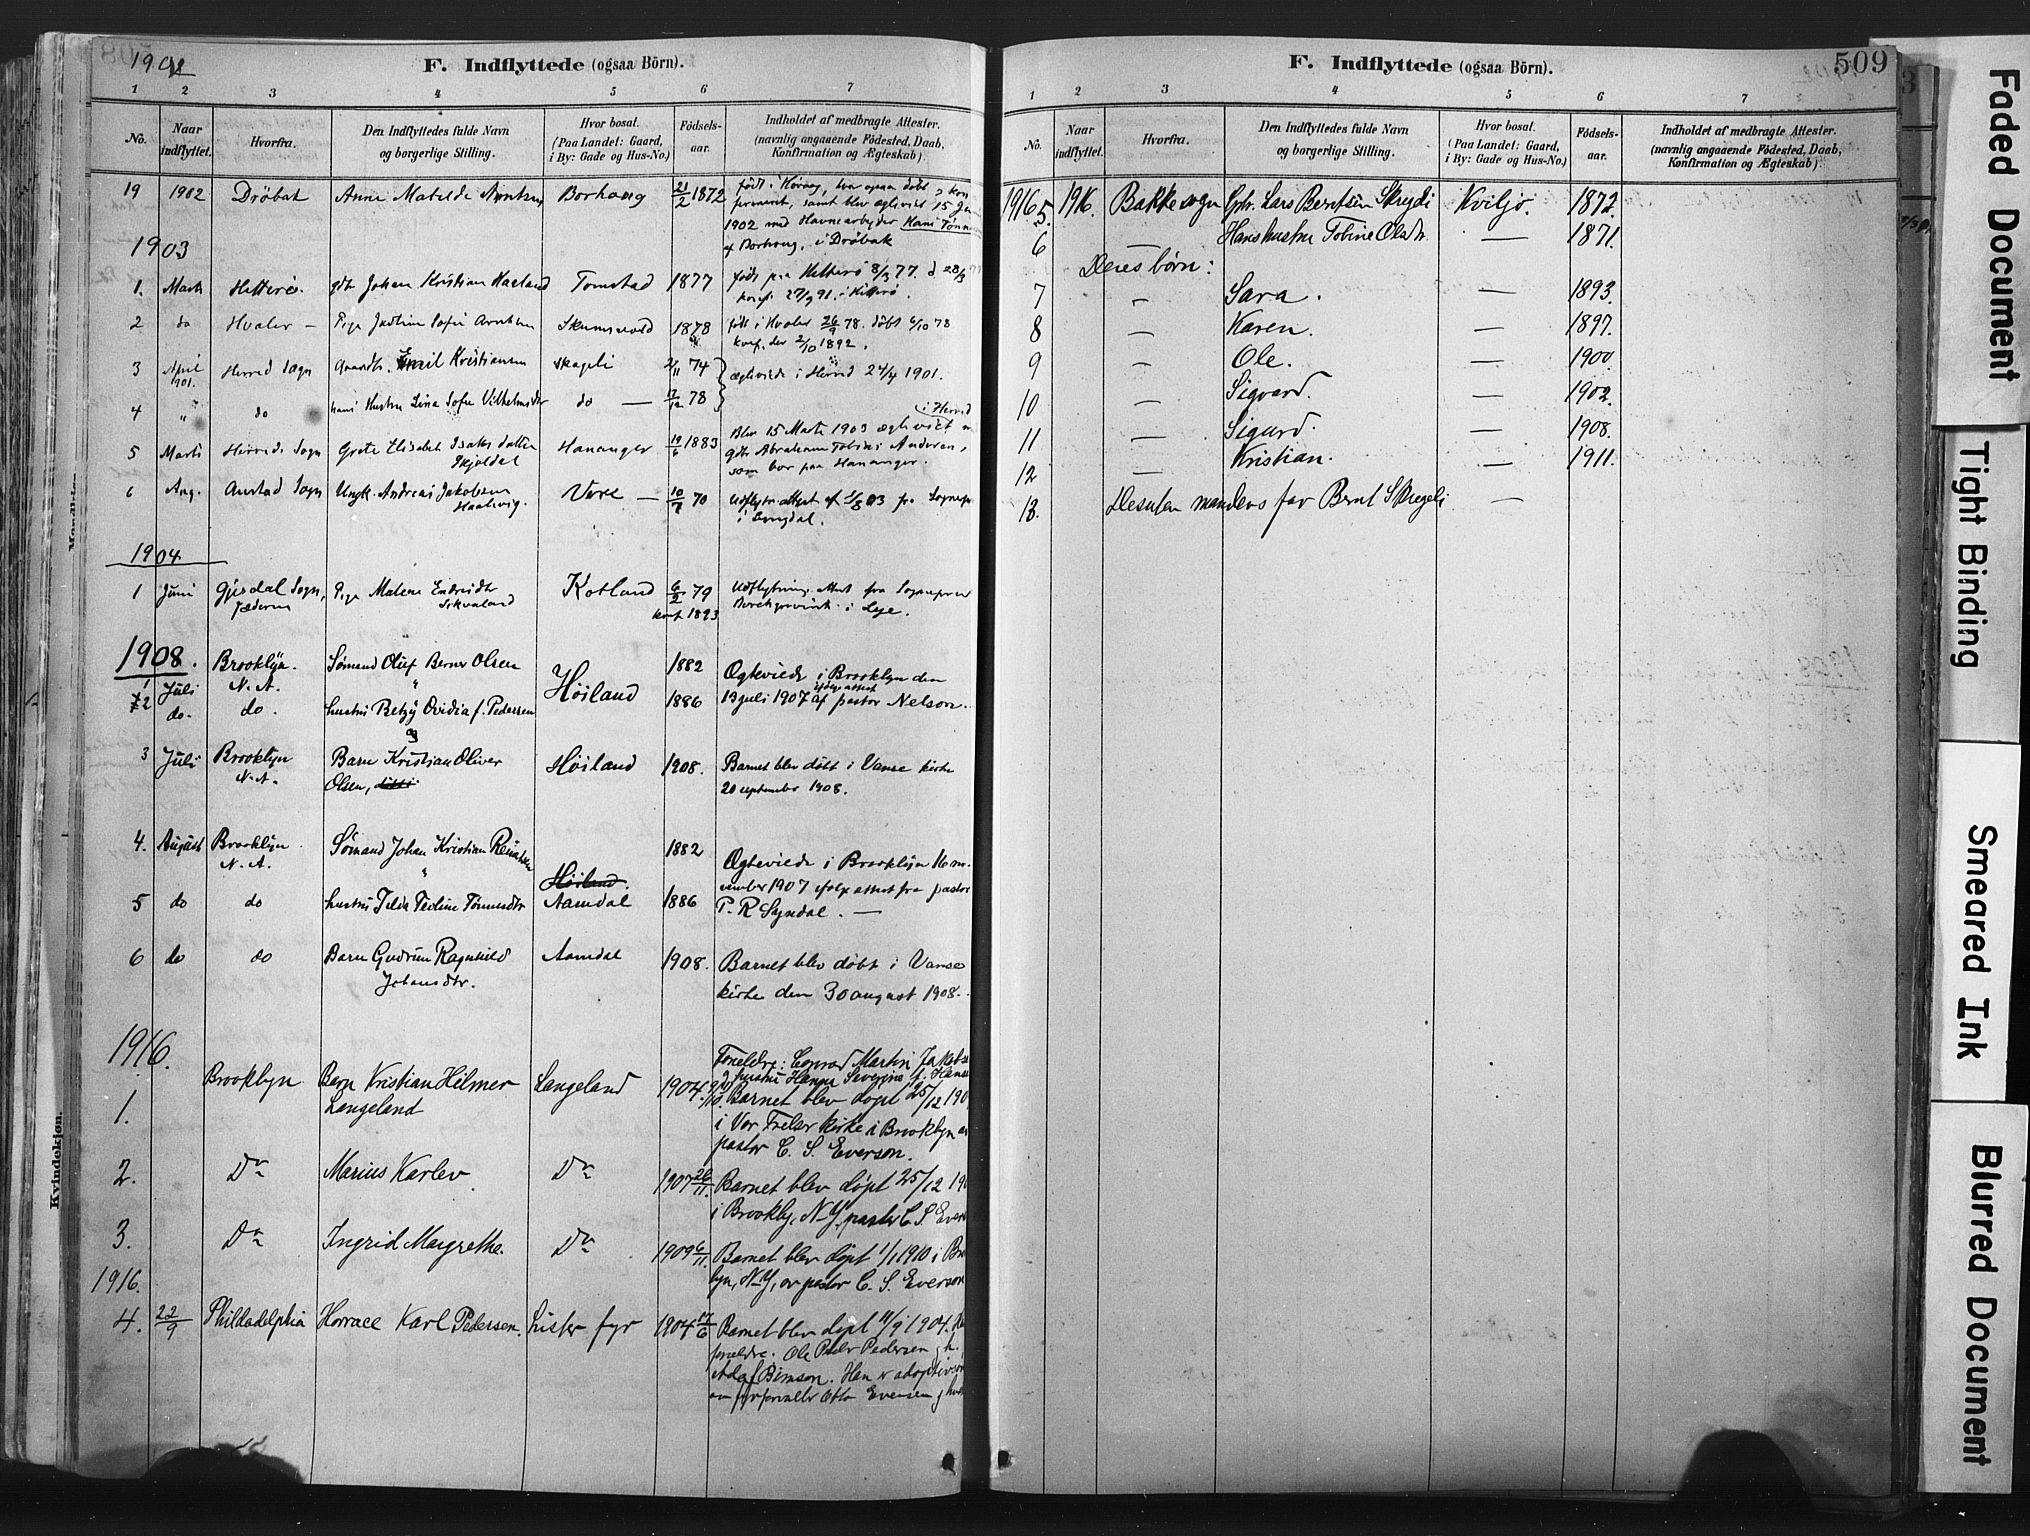 1902
F. Indflyttede (ogsaa Börn).
1 2 3 4 5 6 7
No.
Naar indflyttet.
Hvorfra.
Den Indflyttedes fulde Navn
og borgerlige Stilling.
Hvor bosat.
(Paa Landet: Gaard,
i By: Gade og Hus-No.)
Födsels-
aar.
Indholdet af medbragte Attester.
(navnlig angaaende Födested, Daab,
Konfirmation og Ægteskab)
19 1902 Dröbak Anne Matilde Arntsen Borhoug 21/2 1872
1902 med Havnearbeyder Hans Tönn
af Borhoug, i Dröbak
1903
1. Marts Hitterö. Johan Kristian Haaland Tomstad 1877 født paa Hitterö 8/3 77. d 28/3
konf. 27/9 91. i Hitterö.
2 do Hvaler — Pige Sofie Arntsen 1878 født i Hvaler 26/9 78. døbt 6/10 78
konf. der 2/10 1892.
3 April 1901. Herred Sogn Gaardbr. Emil Kristiansen Skageli 2/11 74 ægteviede i Herred 27/4 1901.
4 " do hans Hustru Lina Sofie Vilhelmsdtr do — 17/12 78
i Herred
5 Marts Herreds Sogn Grete Elisabet Isaks datter
Skjoldal Hananger 19/6 1883 Blev 15 Marts 1903 ægteviet m
Abraham Tobias Andersen,
som bor paa Hananger.
6 Aug. Austad Sogn Ungk. Andreas Jakobsen
Haaløvig. Vere — 10/7 70 Udflytn. attest af 1/8 03 fra Sognepr
i Lyngdal.
1904
1 Juni Gjesdal Sogn,
Jæderen Pige Malene Endresdtr
Kotland 6/2 79
konf 1893 Udflytning. attest fra Sognepræst
i Lye.
1908.
1 Juli Brooklyn.
N. A. Sømand Oluf Berner Olsen Høiland 1882 Ægteviede i Brooklyn den
2 do. do. hustru Betzy Ovidia f. Pedersen 1886 13 juli 1907 ifølge attest af pastor Nelson.
og
3 Juli Brooklyn
N. A. Barn Kristian Oliver
Olsen, Høiland 1908. Barnet blev døbt i Vanse kirke
20 september 1908.
4. August Brooklyn
N. A. Sømand Johan Kristian Høiland. 1882 Ægteviede i Brooklyn 16 no-
vember 1907 ifølge attest fra pastor
5 do do hustru Tilda Teoline Tønnesdtr Aamdal 1886 P. R. Syndal. —
6 do do Barn Gudrun Ragnhild
Johansdtr. Aamdal 1908. Barnet blev døbt i Vanse
kirke den 30 august 1908.
1916.
Forældre: Conrad Martin Jakobse
og hustru Hanna Severine f. Hanse
1. Brooklyn Barn Kristian Hilmer
Langeland Langeland 1904 9/10. Barnet blev døpt 25/12 190
i Vor Frelser Kirke i Brooklyn av
pastor C. S. Everson.
2. Do Marius Karlev Do 1907 26/11. Barnet blev døpt 25/12 190
i Brookly, N-Y, pastor C. S. Evers
3. Do Ingrid Margrethe. Do 1909 6/11. Barnet blev døpt 1/1 1910 i Bro
lyn, N-Y, av pastor C. S. Everson
1916.
4. 22/9 Phildadelphia Horrace Karl Pedersen. Lister fyr 1904 17/6 Barnet blev døpt 11/9 1904.
forældre. Ole Peder Pedersen og h.
Ada f Bimson. Han er adoptivsøn
av fyrforvalter Otto Evensen og hust
Mandkjøn
Kvindekjøn.
509
F. Indflyttede (ogsaa Börn).
1 2 3 4 5 6 7
No.
Naar indflyttet.
Hvorfra.
Den Indflyttedes fulde Navn
og borgerlige Stilling.
Hvor bosat.
(Paa Landet: Gaard,
i By: Gade og Hus-No.)
Födsels-
aar.
Indholdet af medbragte Attester.
(navnlig angaaende Födested, Daab,
Konfirmation og Ægteskab)
1916 5. 1916. Bakke sogn Gbr. Lars Berntsen Skregeli Kviljo. 1872.
6 — Hans hustru Tobine Olsdtr. — 1871.
Deres børn:
7 — Sara. — 1893.
8 — Karen. — 1897.
9 — Ole. — 1900.
10 — Sigvard. — 1902.
11 — Sigurd. — 1908.
12 — Kristian. — 1911.
13. Desuten mandens far Bernt Skregeli —
Faded Document
Tight Binding
Smeared Ink
Blurred Document